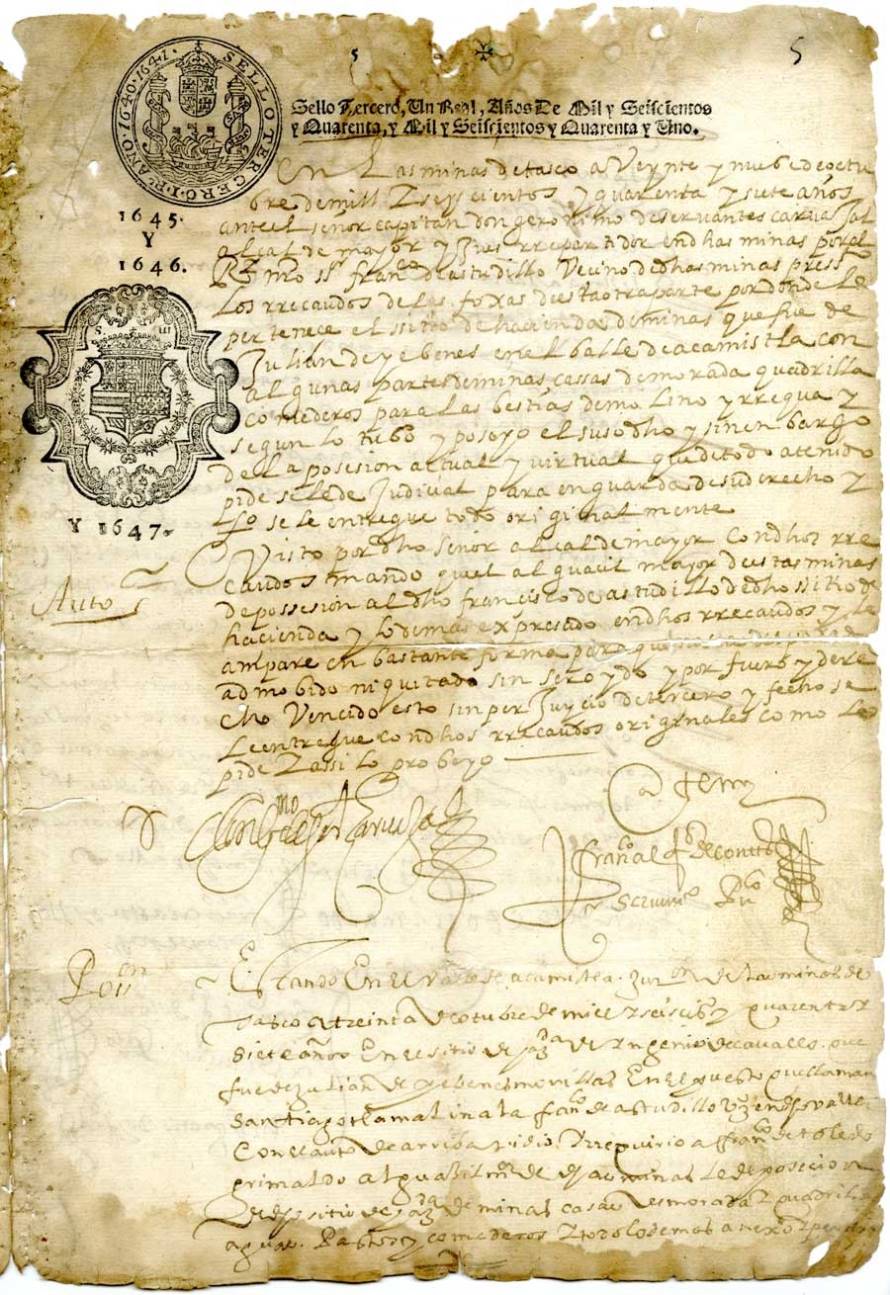 5
5
SELLO TERCERO. I. P. AÑO. 1640. 1641.
Sello Tercero, Un Real, Años De Mil y Seiscientos
y Quarenta, y Mil y Seiscientos y Quarenta y Uno.
1645.
Y
1646.
Y 1647.
En Las minas de tasco a Veynte y nuebe de otu
bre de mill Z seyscientos y quarenta y siete años
ante el señor capitan don geronimo de servantes carvajal
alcalde mayor y rrepartidor en dhas minas por el
Rey nro sr franco de astudillo Vecino de dhas minas press
Los rrecaudos de las foxas desta otra parte por donde le
pertenece el sitio de hacienda de minas que fue de
Julian de yebenes en el balle de acamistla con
algunas partes de minas cassas de morada quadrilla
comederos para las bestias de molino y rregua y
segun lo tubo y poseyo el susodho y sin enbargo
de la posesion actual y virtual que de todo a tenido
pide se le de Judicial para en guarda de su derecho y
se le entregue todo originalmente
Auto
Visto por dho señor alcalde mayor con dhos rre
caudos mando quel alguacil mayor destas minas
de possesion al dho francisco de astudillo de dho ssitio de
hacienda y lo demas expresado en dhos rrecaudos y le
ampare en bastante forma para que
admobido ni quitado sin ser oydo y por fuero y dere
cho Vencido esto sin perjuycio de tercero y fecho se
le entregue con dhos rrecaudos originales como lo
pide Z assi lo probeyo
Ante mi
Don Gmo de ser Carvajal
Franco
Scrivno Puco
Poon
Estando En el Valle de acamistla jurn de las minas de
Tasco a treinta de otubre de mill y seiscios y quarenta y
siete años En el sitio de hazda de Yngenio de cavallo que
fue de Julian de yebenes morillas En el puesto que llaman
Santiago tlamalinala franco de astudillo vzo en dho valle
Con el auto de arriba pidio Y rrequirio a franco de toledo
grimaldo alguasil mor de dhas minas le de posecion
de dho sitio de hazda de minas casas de morada Z quadrilla
aguas Pastos y comederos Z todo lo demas anexo Z